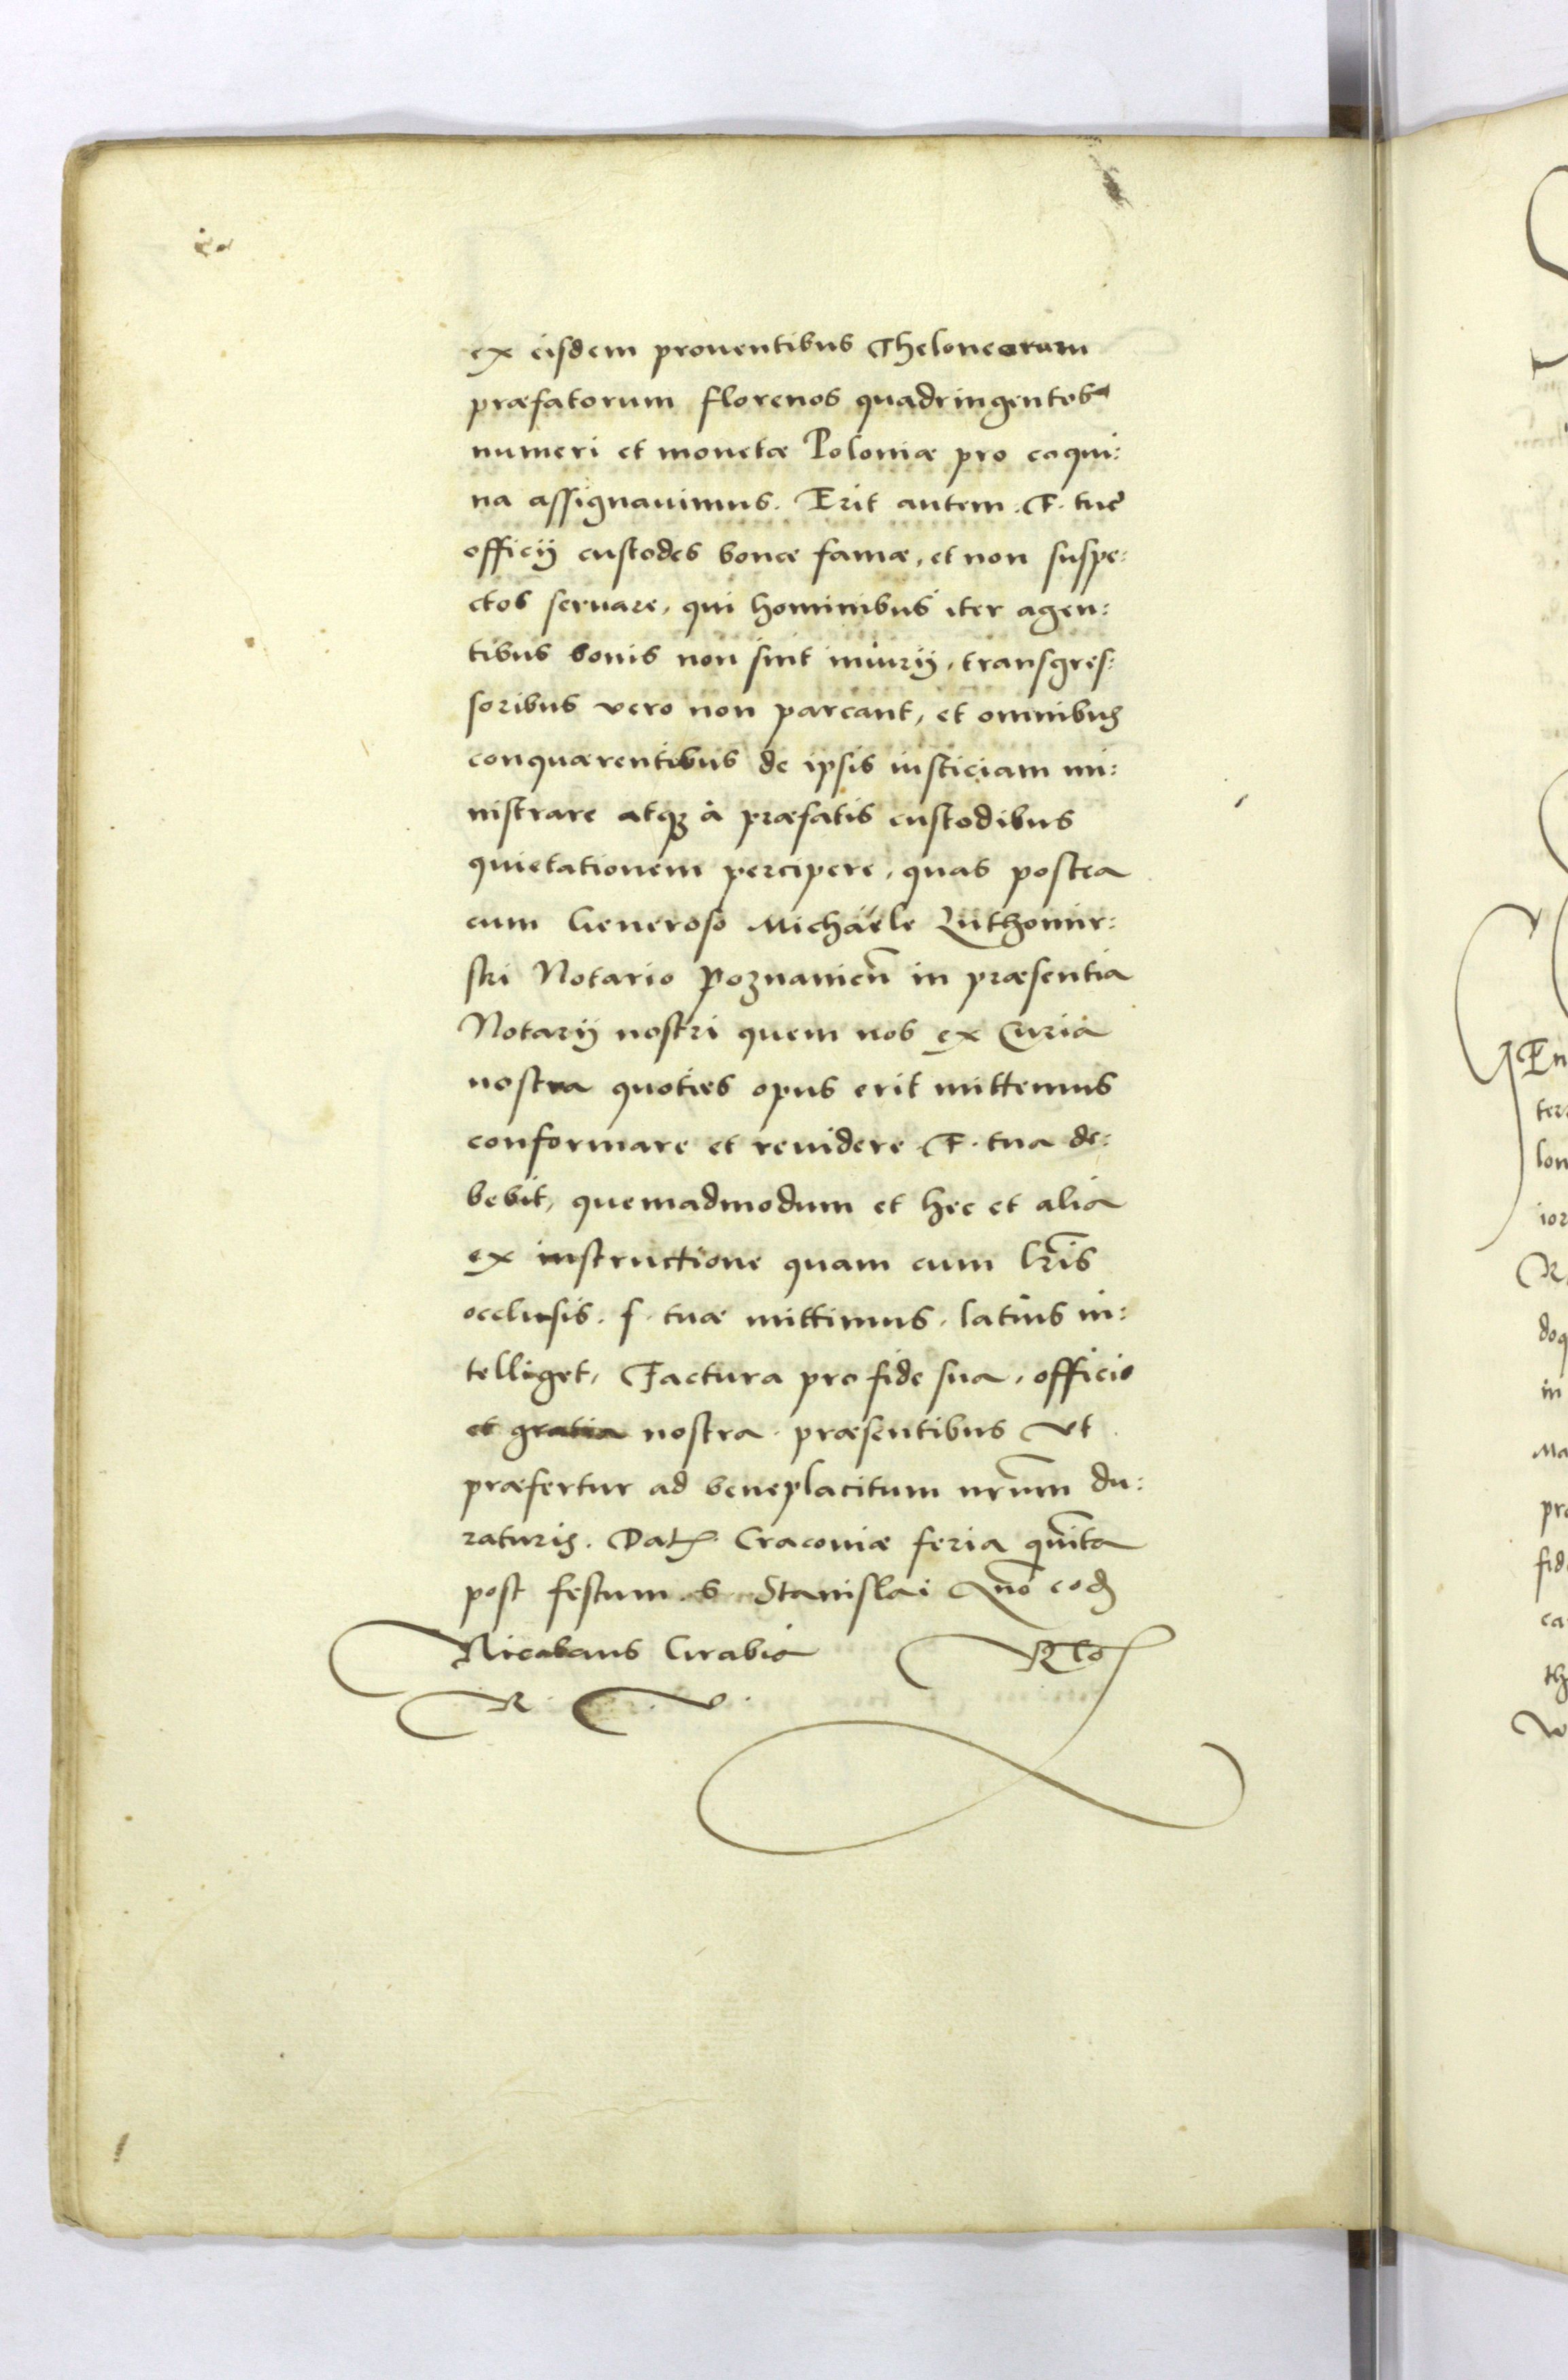 ex eisdem prouentibus Theloneorum
præfatorum florenos quadringentos
numeri et monetæ Poloniæ pro coqui:
na assignauimus. Erit autem. F. tuę
officij custodes bonæ famæ, et non suspe:
ctos seruare, qui hominibus iter agen:
tibus bonis non sint iniurij, transgres:
soribus vero non parcant, et omnibus
conquærentibus de ipsis iusticiam mi:
nistrare atqȝ à præfatis custodibus
quietationem percipere, quas postea
cum Generoso Michaële Luthomir:
ski Notario Poznanieñ in præsentia
Notarij nostri quem nos ex Curia
nostra quoties opus erit mittemus
conformare et reuidere F. tua de:
bebit, quemadmodum et hec et alia
ex instructione quam cum lr̃is
occlusis. f. tuæ mittimus. latius in:
telliget, Factura pro fide sua, officio
et gratia nostra. præsentibus vt
præfertur ad beneplacitum nr̃um du:
raturis. Dat. Cracouiæ feria quinta
post festum S Stanislai Anno eod
Nicolaus Grabia
R. C. V.
En
ter
lon
ior
R
doq
in
Ma
pro
fid
ca
th